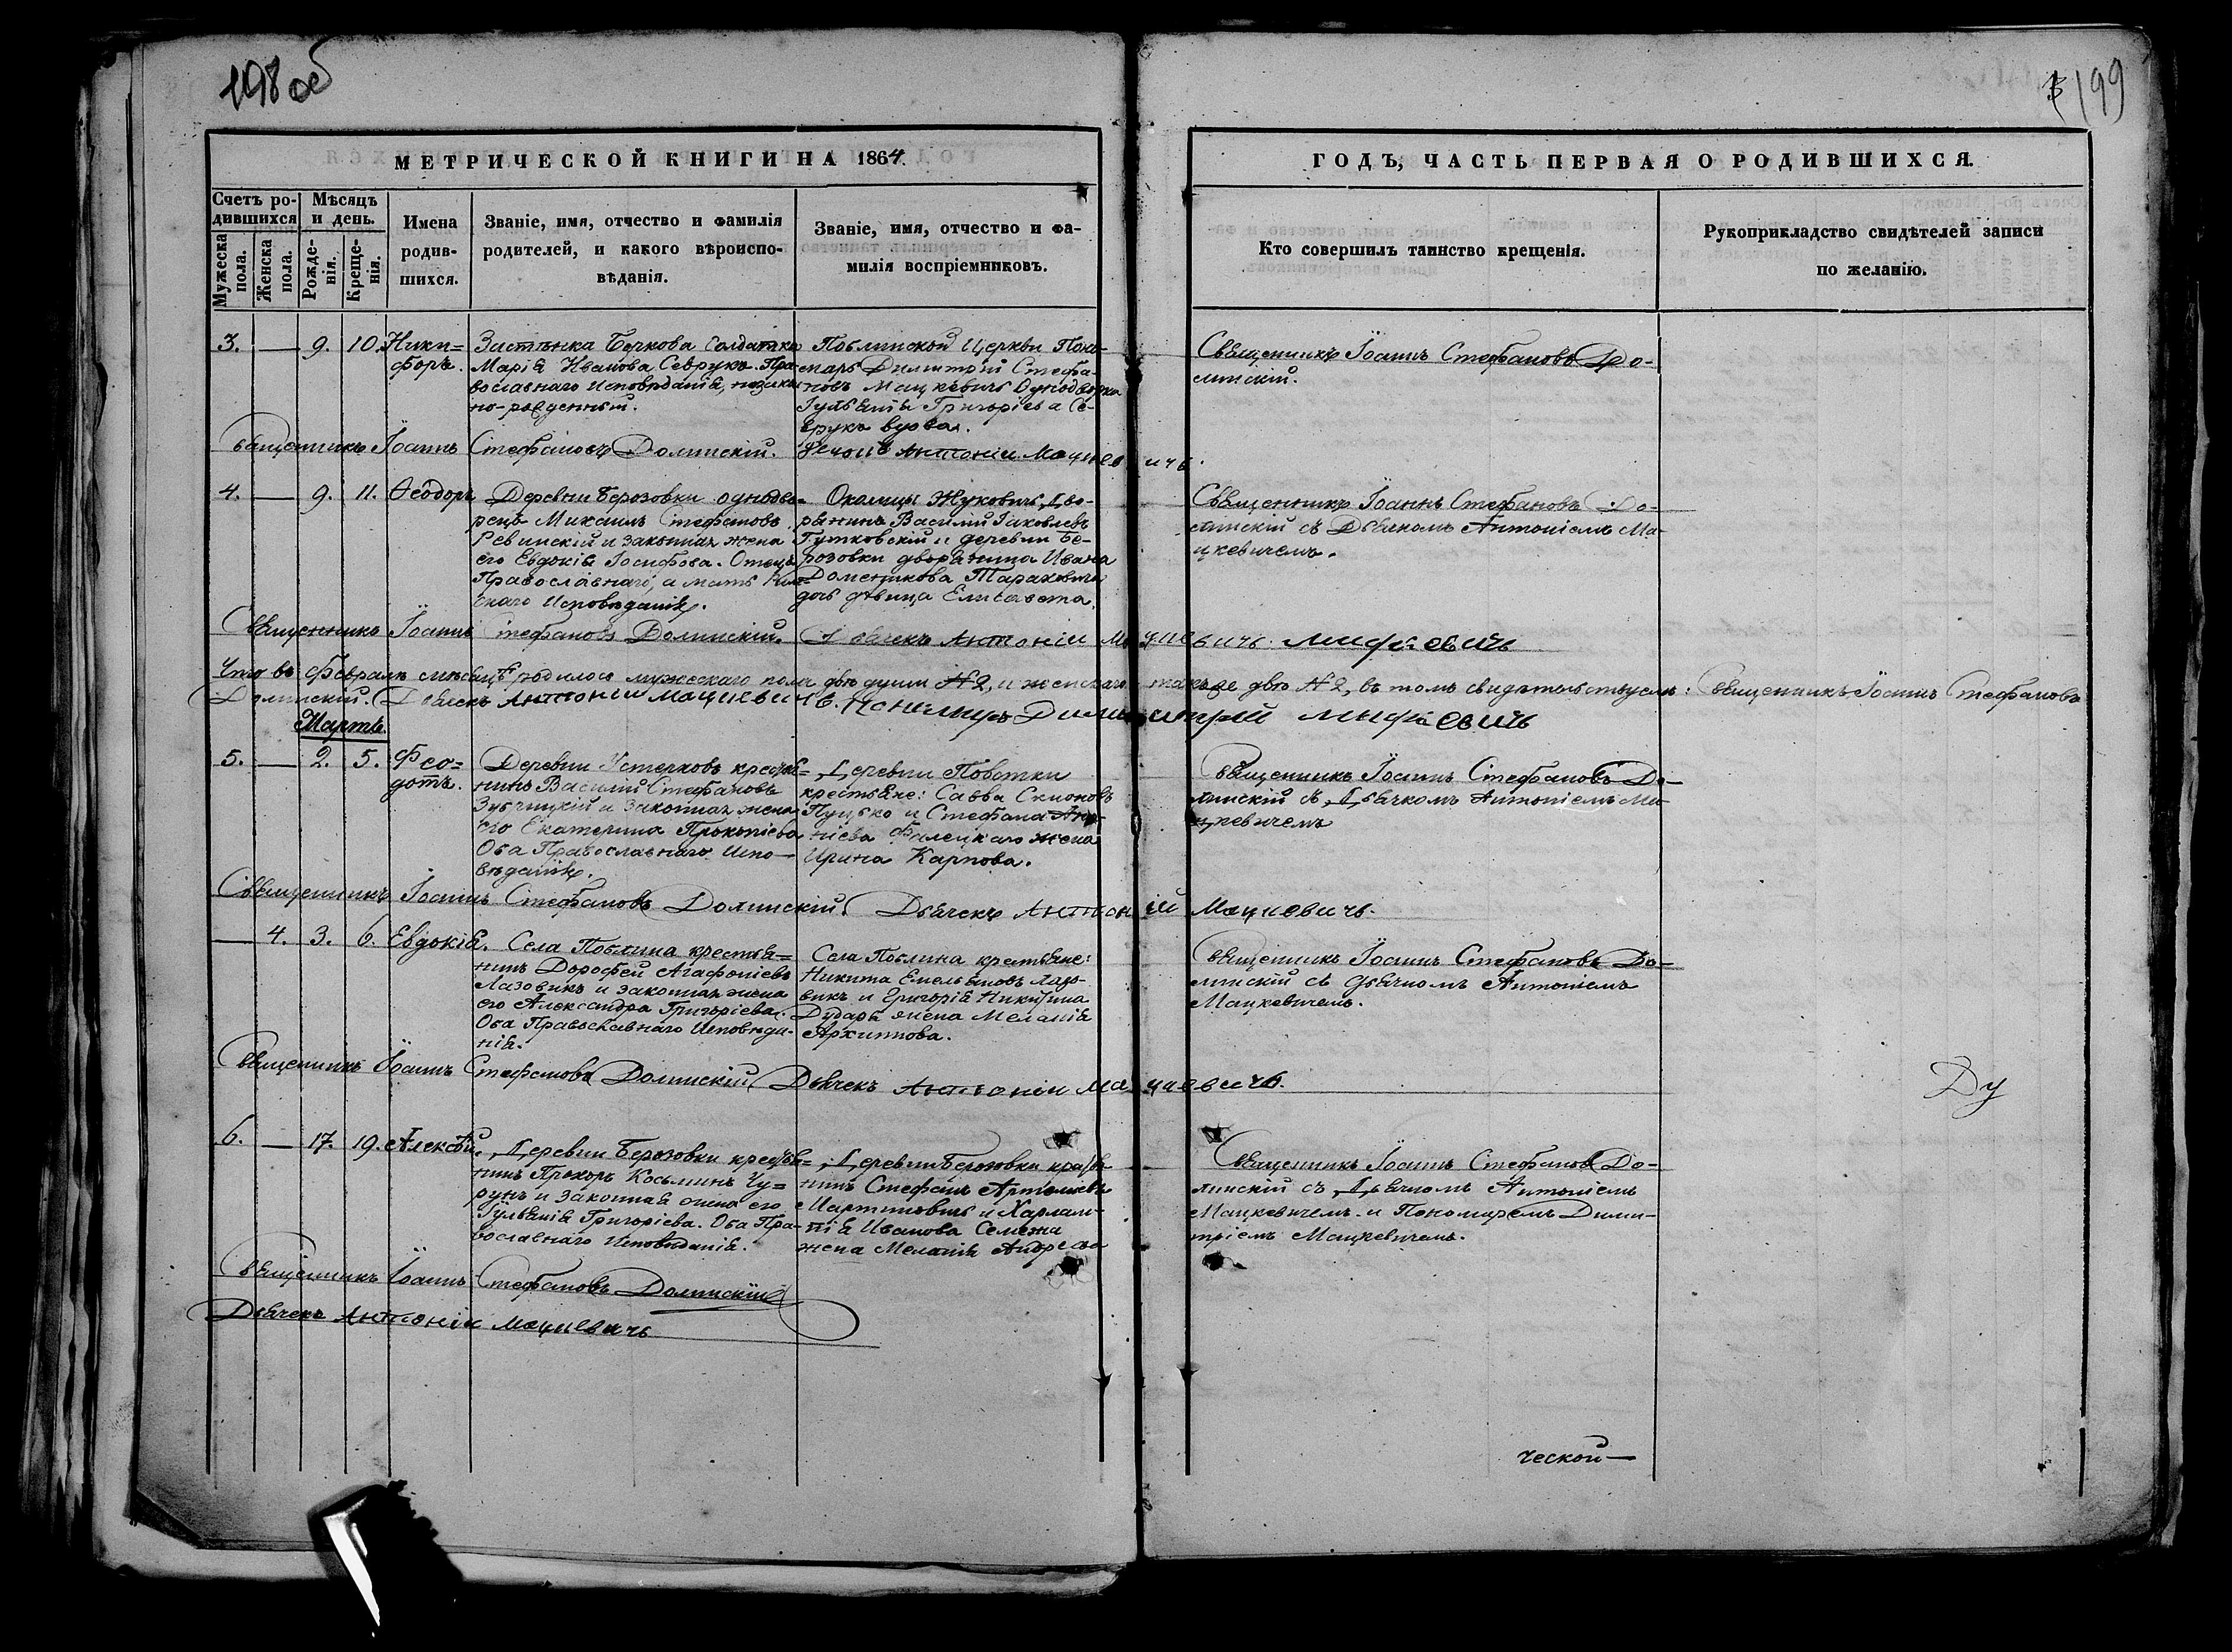 198 об
199
МЕТРИЧЕСКОЙ КНИГИ НА 1864.
ГОДЪ, ЧАСТЬ ПЕРВАЯ О РОДИВШИХСЯ.
Счетъ родившихся
Мужеска пола.
Женска пола.
Мѣсяцъ и день.
Рожденія.
Крещенія.
Имена родившихся.
Званіе, имя, отчество и фамилія
родителей, и какого вѣроиспо-
вѣданія.
Званіе, имя, отчество и фа-
милія воспріемниковъ.
Кто совершилъ таинство крещенія.
Рукоприкладство свидѣтелей записи
по желанію.
3. — 9. 10. Ники=
форъ.
Застѣнка Боркова Солдатка
Марія Иванова Севрукъ. Пра-
вославнаго Исповѣданія, незакон-
но-рожденный.
Поблинской Церкви Поно-
марь Димитрій Стефа-
новъ Мацкевичъ Однодворка
Іуліанія Григоріева Се-
врукъ вдова.
Священникъ Іоаннъ Стефановъ До-
линскій.
Священникъ Іоаннъ Стефановъ Долинскій. Дьячокъ Антоній Мацкевичъ.
4. — 9. 11. Ѳеодоръ
Деревни Березовки однодво-
рецъ Михаилъ Стефановъ
Ревинскій и законная жена
его Евдокія Іосифова. Отецъ
Православнаго, а мать Рим-
скаго Исповѣданія.
Околицы Жуковичъ, Дво-
рянинъ Василій Іаковлевъ
Гутковскій и деревни Бе-
розовки дворянина Ивана
Доменикова Тараховича
дочь дѣвица Елисавета.
Священникъ Іоаннъ Стефановъ До-
линскій съ Дьячкомъ Антоніемъ Ма-
цкевичемъ.
Священникъ Іоаннъ Стефановъ Долинскій. Дьячекъ Антоній Мацкевичъ.
Что въ Февралѣ мѣсяцѣ родилось мужескаго пола двѣ души №2, и женскаго также двѣ №2, въ томъ свидѣтельствуемъ: Священникъ Іоаннъ Стефановъ
Долинскій. Дьячекъ Антоній Мацкевичъ. Пономарь Димитрій Мацкевичъ
Мартъ.
5. — 2. 5. Фео=
дотъ.
Деревни Устерковъ крестья=
нинъ Василій Стефановъ
Зубчицкій и законная жена
его Екатерина Прокопіева
Оба Православнаго Испо-
вѣданія.
Деревни Повстки
крестьяне: Савва Симоновъ
Пуцько и Стефана Анто-
ніева Филецкаго жена
Ирина Карпова.
Священникъ Іоаннъ Стефановъ До-
линскій съ Дьячкомъ Антоніемъ Ма-
цкевичемъ
Священникъ Іоаннъ Стефановъ Долинскій. Дьячекъ Антоній Мацкевичъ.
— 4. 3. 6. Евдокія.
Села Поблина крестья=
нинъ Дорофей Агафоніевъ
Лазовикъ и законная жена
его Александра Григоріева.
Оба Православнаго Исповѣда-
нія.
Села Поблина крестьяне:
Никита Емельяновъ Лазо-
викъ и Григорія Никитина
Дударя жена Меланія
Архиппова.
Священникъ Іоаннъ Стефановъ До-
линскій съ дьячкомъ Антоніемъ
Мацкевичемъ.
Священникъ Іоаннъ Стефановъ Долинскій Дьячекъ Антоній Мацкевичъ.
Ду
6. — 17. 19. Алексѣй.
Деревни Березовки крестья=
нинъ Прохоръ Косьминъ Цу=
рунъ и законная жена его
Іуліанія Григоріева. Оба Пра-
вославнаго Исповѣданія.
Деревни Березовки крестья
нинъ Стефанъ Артеміевъ
Мартиновичъ и Харлам-
пія Иванова Семежа
жена Меланія Андреева
Священникъ Іоаннъ Стефановъ До-
линскій съ Дьячкомъ Антоніемъ
Мацкевичемъ и Пономаремъ Дими-
тріемъ Мацкевичемъ.
Священникъ Іоаннъ Стефановъ Долинскій
Дьячекъ Антоній Мацкевичъ
ческой—